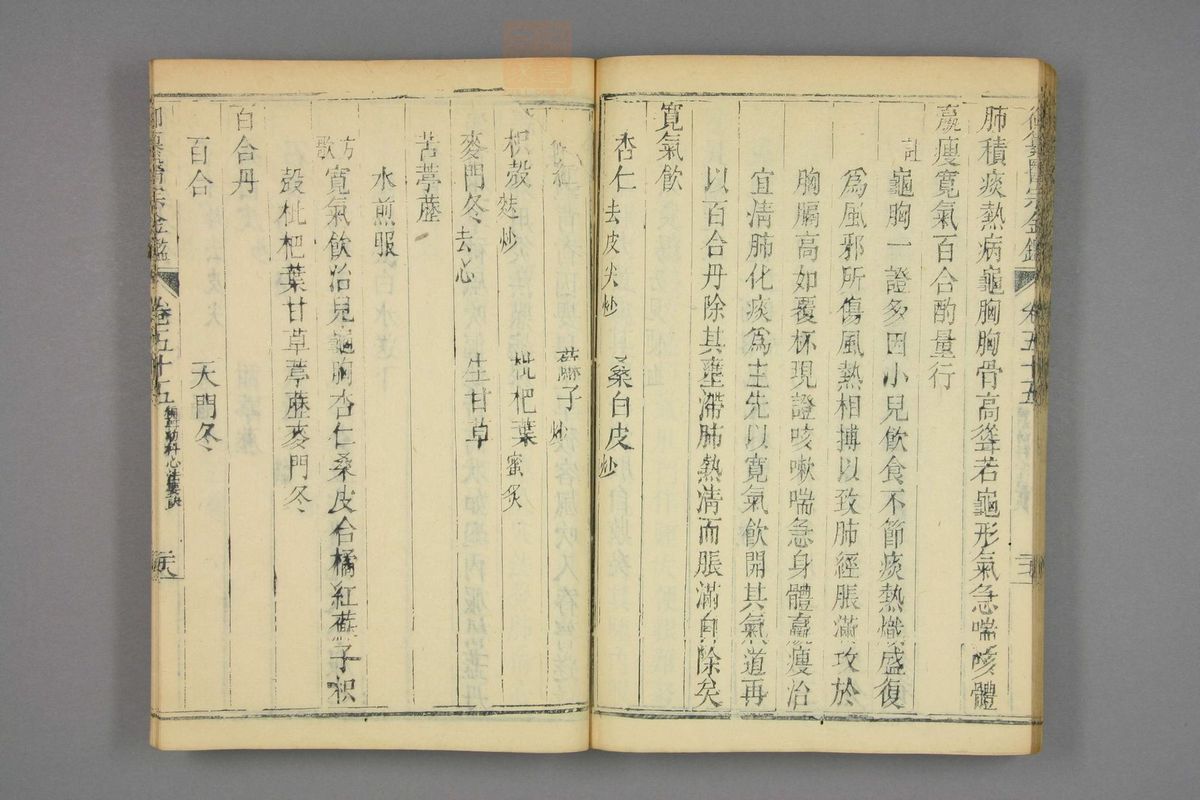 肺積痰熱病龜胸胸骨高聳若龜形氣急喘咳體
羸瘦寛氣百合酌量行
註
龜胸一證多因小兒飲食不節痰熱熾盛復
為風邪所傷風熱相搏以致肺經脹滿攻於
胸膈高如覆杯現證咳嗽喘急身體羸瘦治
宜淸肺化痰爲主先以寛氣飲開其氣道再
以百合丹除其壅滯肺熱淸而脹滿自除矣
寛氣飲
杏仁去皮尖炒 桑白皮炒
蘇子炒
枳殼麩炒 枇杷葉蜜炙
麥門冬去心 生甘草
苦葶藶
水煎服
方歌
寛氣飲治兒龜胸杏仁桑皮合橘紅蘇子枳
殼枇杷葉甘草葶藶麥門冬
百合丹
百合 天門冬
御纂醫宗金鑑 卷五十五 編輯幼科心法要訣